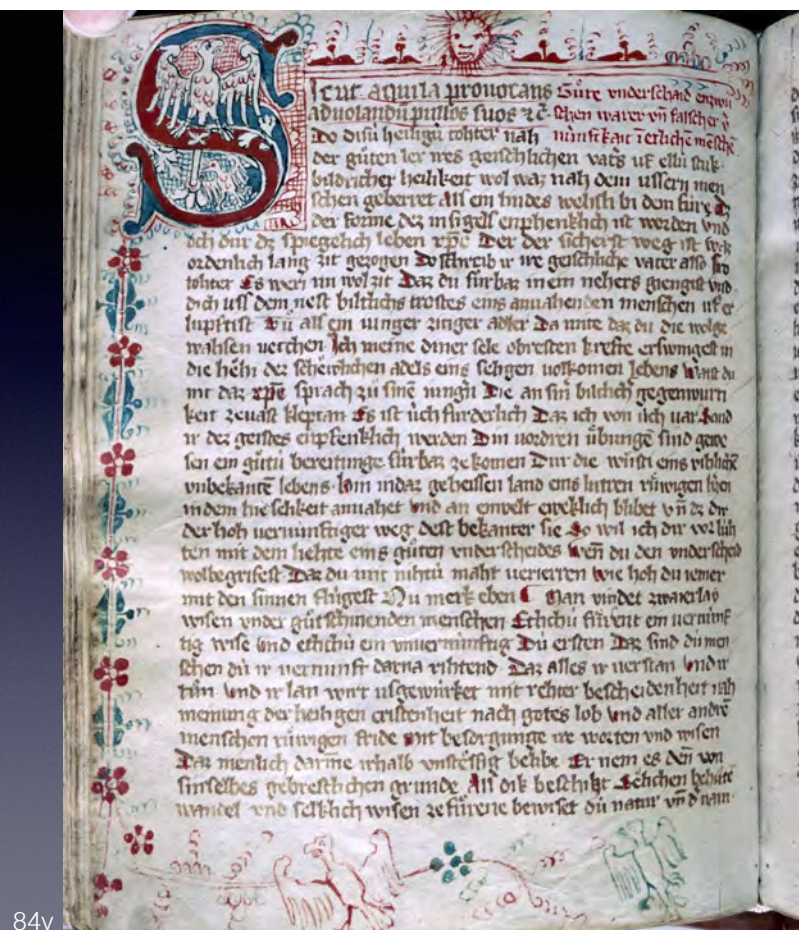 S
Icut aquila prouocans Gůte vnderschaid enzwi
aduolandū pullos suos & c̄ schen warer vn̄ falscher v̄
Do disū heiligū tohter nah nūnftkait ī etlichē mēschē
der gůten ler wes geischlichen vats uf ellú stuk
bildricher heilikeit wol waz nah dem ussern men
schen geberret als ein lindes wehsli bi dem fúre dz
der forme dez insigels enphenklich ist worden vnd
och dur dz spiegelich leben xp̄e Der der sicherst weg ist
ordenlich lang zit gezogen Do schreib ir ire geischliche vater also
tohter Es weri nu wol zit Daz du fúrbaz in ein nehers giengist vnd
dich uss dem nest biltlichs trostes eins anuahenden menschen uf er
lupftist Tů als ein iunger zitiger adler Da mite daz du die wolge
wahsen vetchen Ich meine diner sele obresten krefte erswingest in
die hehi dez schöwlichen adels eins seligen uolkomen lebens Waist du
nit daz xp̄e sprach zů sinē iungrn Die an sin bildich gegenwurti
keit zeuast kleptan Es ist úch fúrderlich Daz ich von úch uar Sond
ir dez geistes enpfenklich werden Din uordren úbungē sind gewe
sen ein gůtú bereitunge fúrbaz ze komen Dur die wůsti eins vihlichē
vnbekantē lebens in daz geheissen land eins lutren růwigen h̄tzen
in dem hie selikeit anuahet vnd an einwelt eweklich blibet vn̄ dz dir
der hoh vernúnftiger weg dest bekanter sie So wil ich dir vor lúh
ten mit dem liehte eins gůten vnderscheides Wen̄ du den vnderscheid
wol begrifest Daz du mit nihtú maht verierren wie hoh du iemer
mit den sinnen flúgest Nu merk eben Man vindet zwaierlay
wisen vnder gůtschinenden menschen Etlichú fůrent ein vernúnf
tig wise vnd etlichú ein vnuernúnftig Dú ersten Daz sind dú men
schen dú ir vernunft darna rihtend Daz alles ir verstan vnd ir
tůn vnd ir lan wirt usgewúrket mit rehter bescheidenheit nah
meinung der heiligen cristenheit nach gotes lob vnd aller andrē
menschen růwigen fride mit besorgunge ire worten vnd wisen
Daz menlich darīne irhalb vnstössig belibe Er nem es den̄ von
sin selbes gebrestlichen grunde Als dik beschiht Sölichen behůtē
wandel vnd selklich wisen ze fúrene bewiset dú natur vn̄ d̄ nam
84v